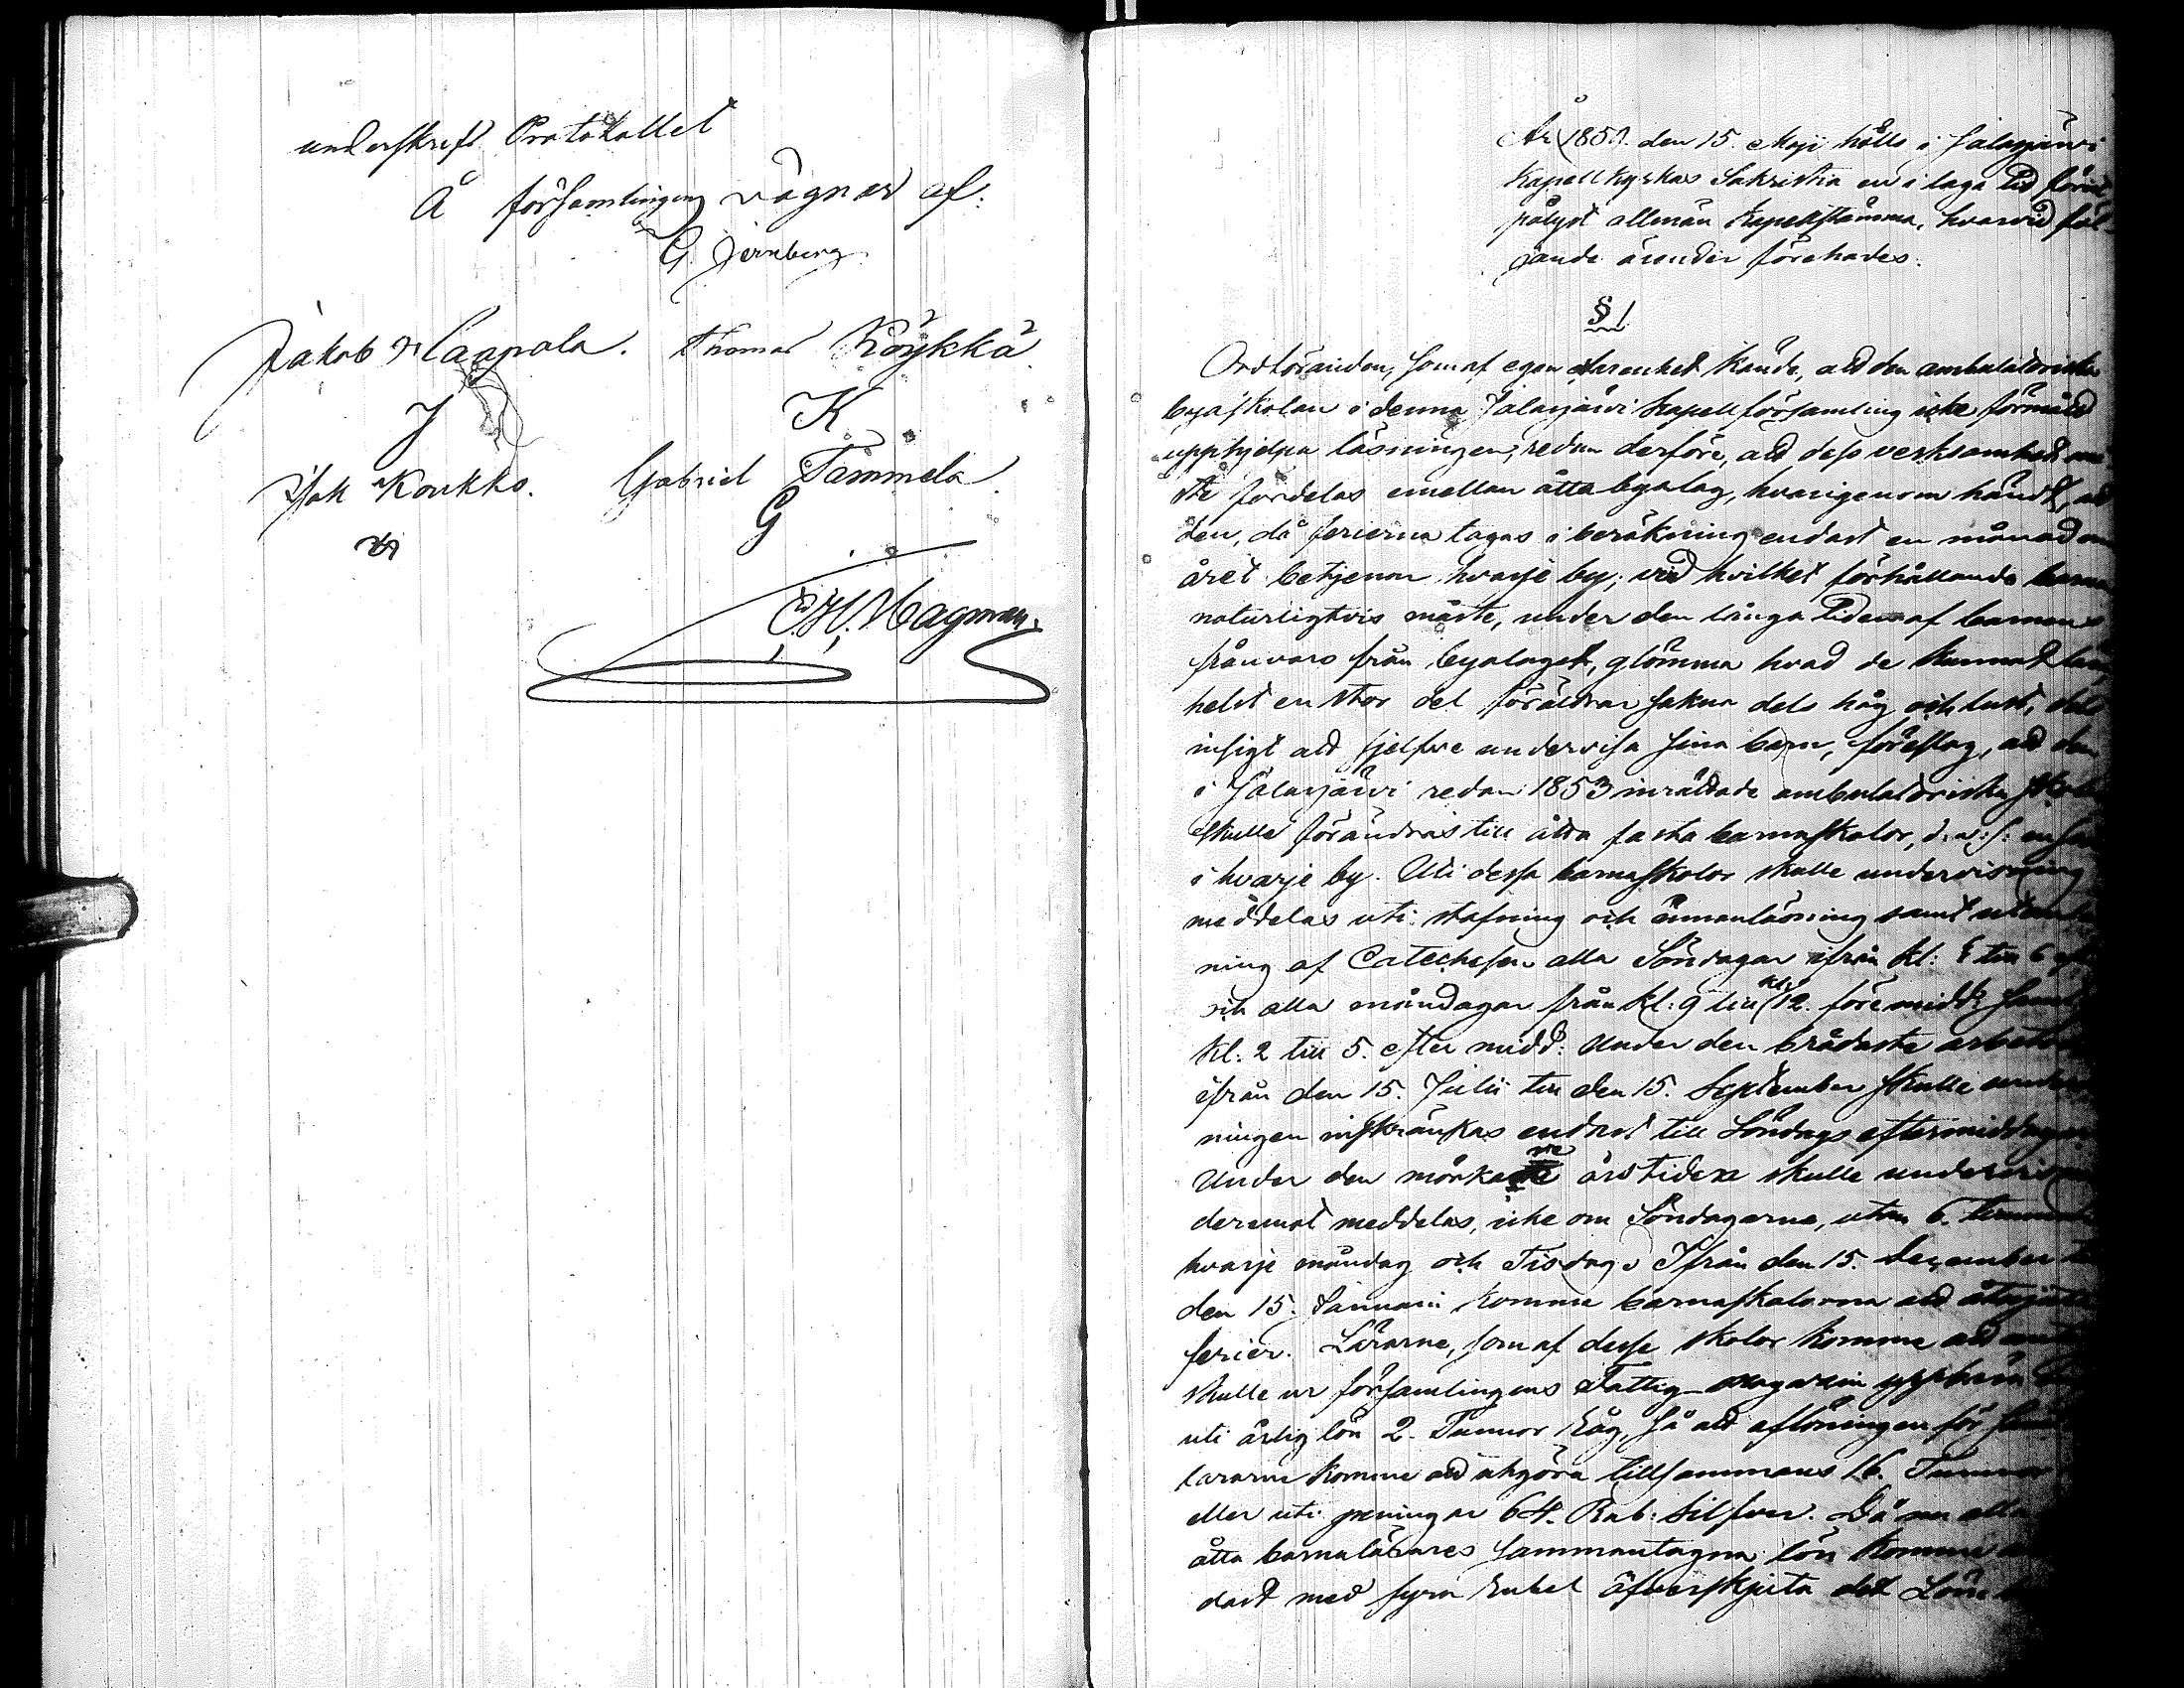 underskrefs Protokollet
Å församlingens vägnar af:
G. Jernberg
Jakob Haapala. Thomas Köykkä
J K
Isak Koukko. Gabriel Tammela
G
C. H. Hagman.
År 1857. den 15. Maji hölls i Jalasjärvi
Kapellkyrkas Sakristia en i laga tid förut
pålyst allmän Kapellstämma, hvarvid föl-
jande ärender förehades.
§ 1.
Ordföranden, som af egen erfarenhet kände, att den ambulatoriska
byaskolan i denna Jalasjärvi Kapellförsamling icke förmått
upphjelpa läsningen, redan derföre, att dess verksamhet
fördelas emellan åtta byalag, hvarigenom händt, att
den, då ferierna tagas i beräkning endast en månad om
året betjenar hvarje by; vid hvilket förhållande barnen
naturligtvis måste, under den långa tiden af barnens
frånvaro från byalaget, glömma hvad de kunnat lära,
helst en stor del föräldrar sakna dels håg och lust, dels
insigt att sjelfve undervisa sina barn, föreslog, att den
i Jalasjärvi redan 1853 inrättade ambulatoriska skola
skulle förändras till åtta fasta barnaskolor, d.v.s. en
i hvarje by. Uti dessa barnaskolor skulle undervisning
meddelas uti stafning och innanläsning samt
ning af Catechesen alla Söndagar ifrån kl: till 6
och alla måndagar från kl: 9 till kl: 12. föremidd: samt
kl: 2 till 5. efter midd: Under den brådaste
ifrån den 15. Julii till den 15. September skulle
ningen inskränkas endast till Söndags eftermiddagen
Under den mörkare årstiden skulle undervisning
deremot meddelas, icke om Söndagarne, utan 6. timmar
hvarje måndag och Tisdag. Ifrån den 15. December till
den 15. Januari komme barnaskolorna att åtnjuta
ferier. Lärarne, som af dessa skolor komme att
skulle ur församlingens Fattig-magasin uppbära
uti årlig lön 2. Tunnor Råg, så att aflöningen för
lärarne komme att utgöra tillsammans 16. Tunnor
eller uti penningar 64. Rub: Silfver. Då nu alla
åtta barnalärares sammantagna lön komme
dast med fyra Rubel öfverskjuta det